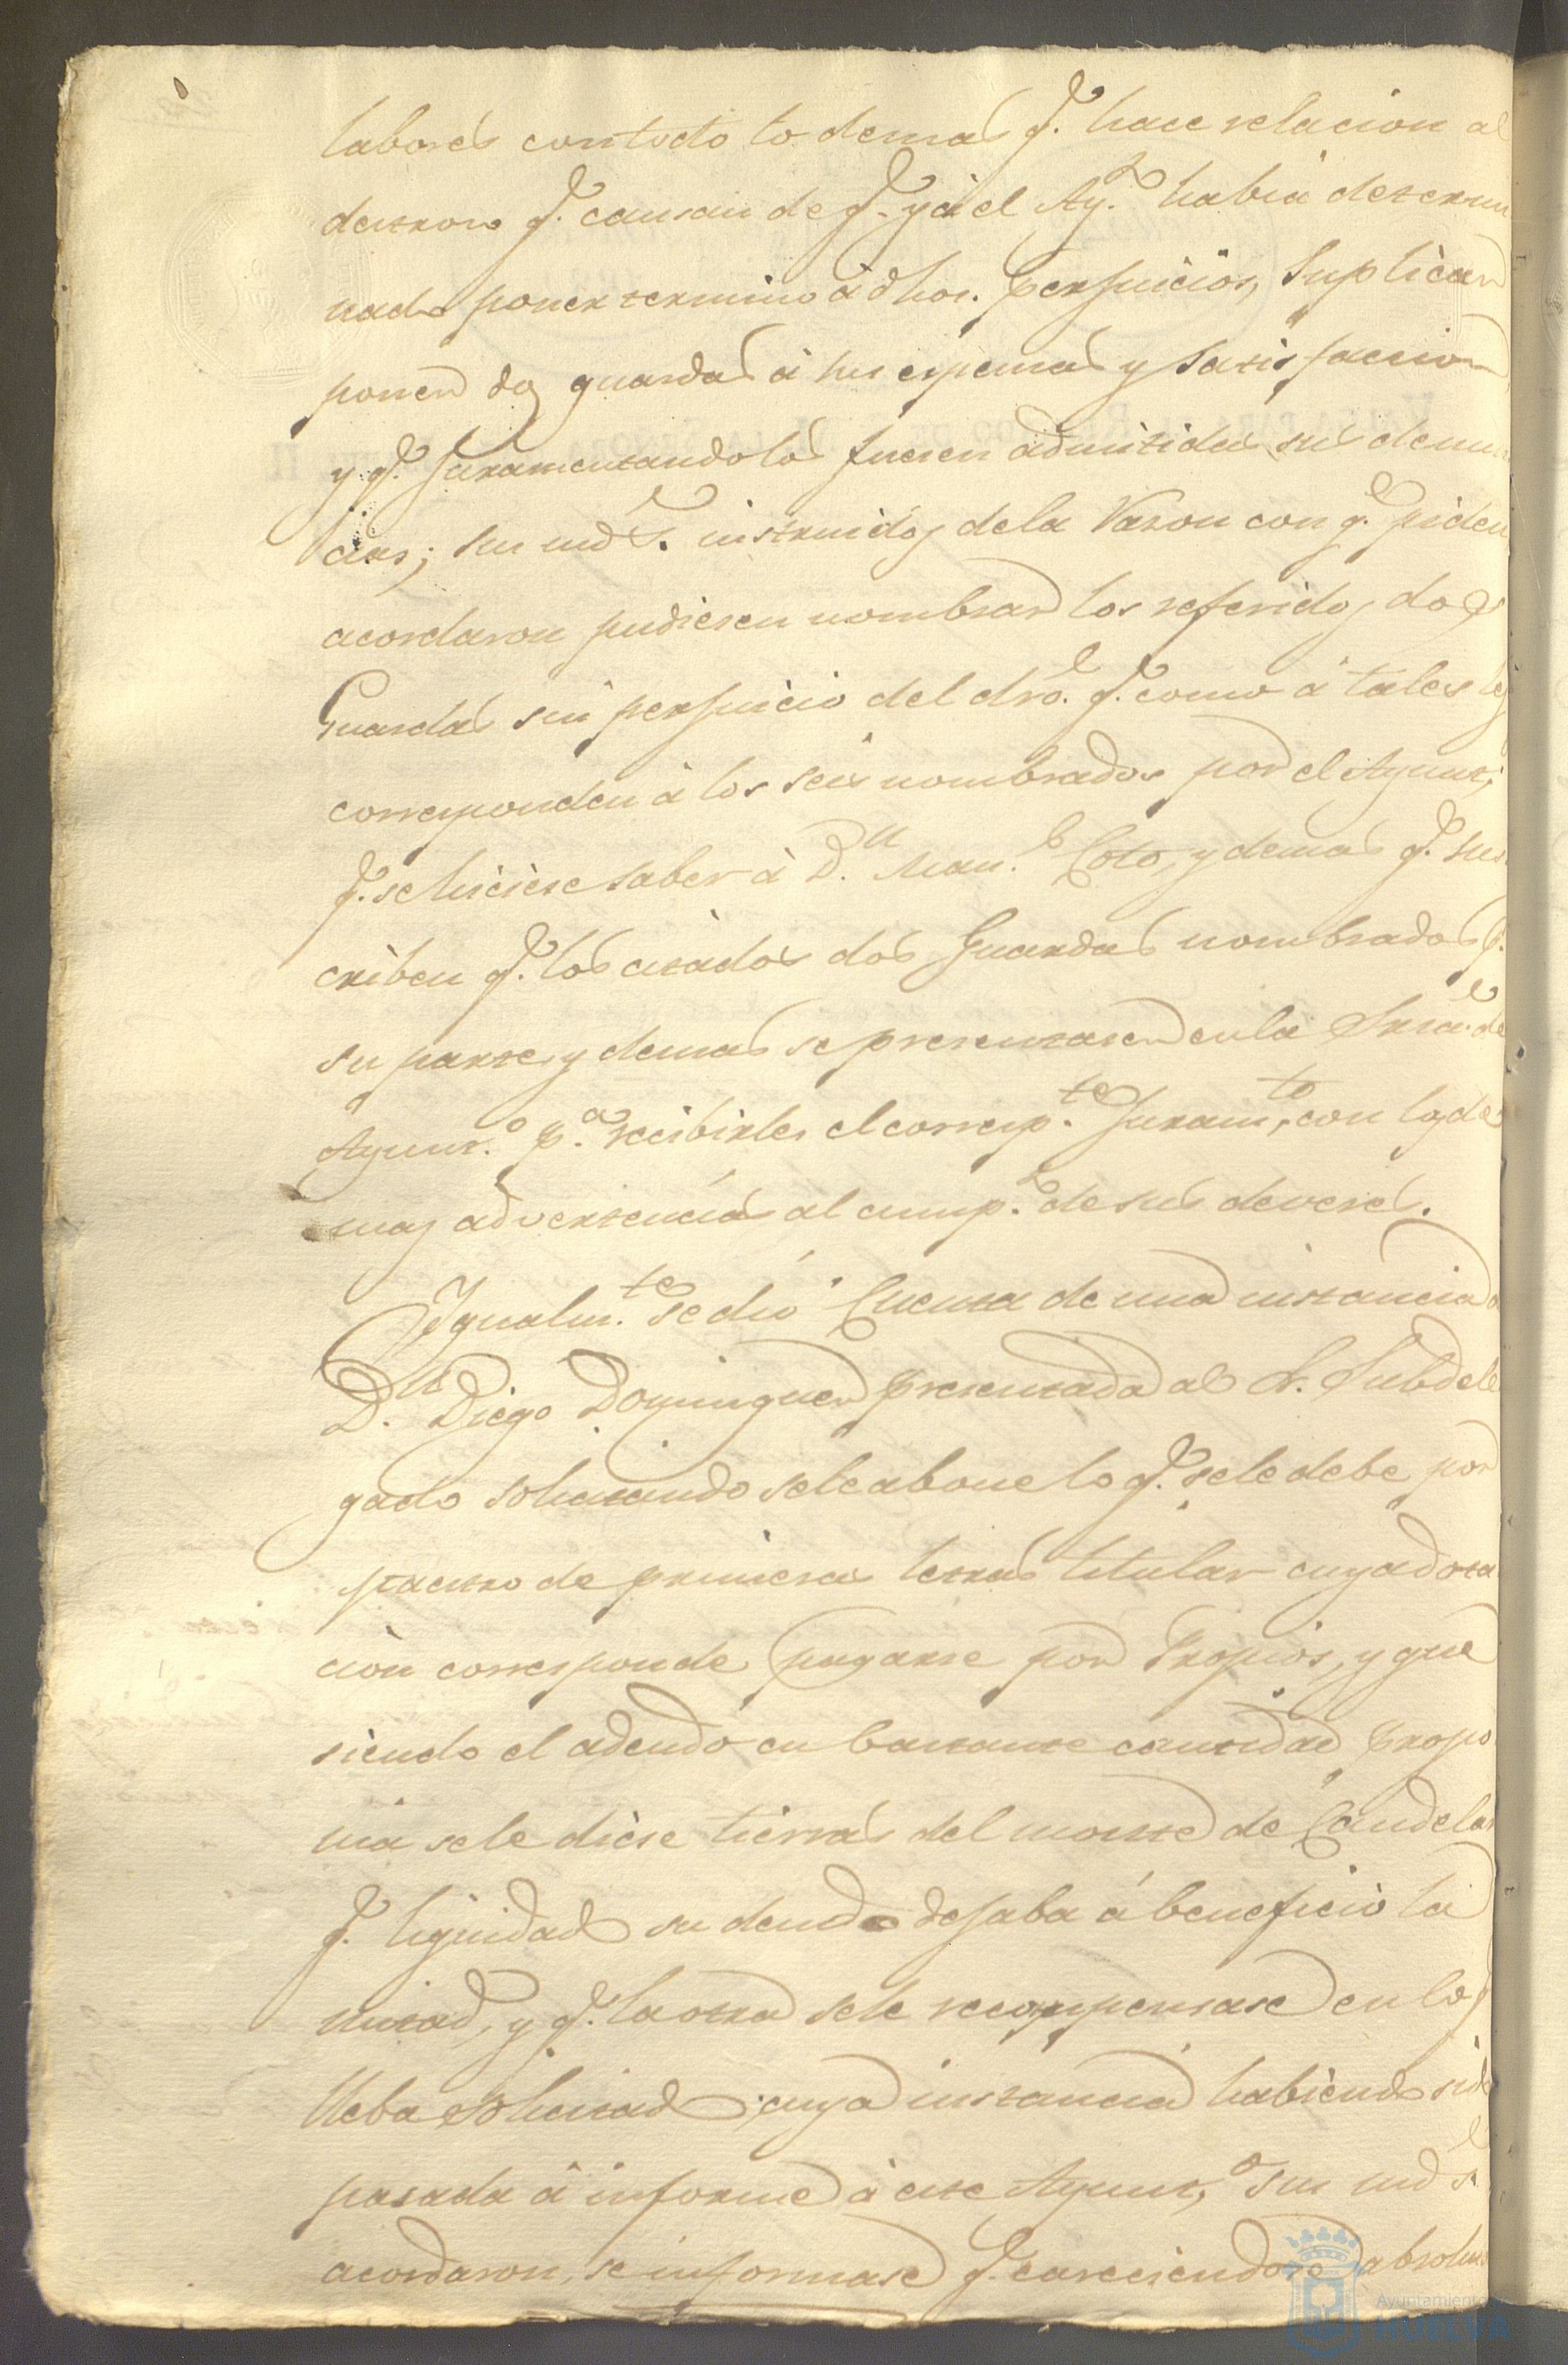 labores con todo lo demas q.e hace relacion al
destroso q.e causan de q.e ya el Ay.to habia determi
nado poner termino à dhos. perjuicios, Suplican
ponen dos guardas à sus espensas y satisfaccion
y q.e Juramentandolos fuesen admitidas sus denun
cias; sus md.s instruidos dela Razon con q.e piden
acordaron pudiesen nombrar los referidos dos
Guardas sin perjuicio del dro. q.e como à tales les
corresponden à los seis nombrados por el Ayunt.o
q.e se hiciese saber à D.n Man.l Coto, y demas q.e sus
criben q.e los citados dos Guardas nombrados p.r
su parte y demas se presentasen en la Sria. de
Ayunt.o p.a recibirles el corresp.te Juram.to con los de
mas advertencias al cump.o de sus deveres.
Igualm.te se dió Cuenta de una instancia de
D.n Diego Dominguez presentada al S. Subdele
gado solicitando sele abone lo q.e sele debe por
Maestro de primeras letras titular cuya dota
ción corresponde pagarse por Propios, y que
siendo el adeudo en bastante cantidad propo
nia sele diese tierras del monte de Candelas
q.e liquidada su deuda dejaba á beneficio la
mitad, y q.e la otra sele recompensase en los q.e
lleba solicitado; cuya instancia habiendo sido
pasada à informe à este Ayunt.o sus md.s
acordaron, se informase q.e careciendose absolut
Ayuntamiento de
HUELVA